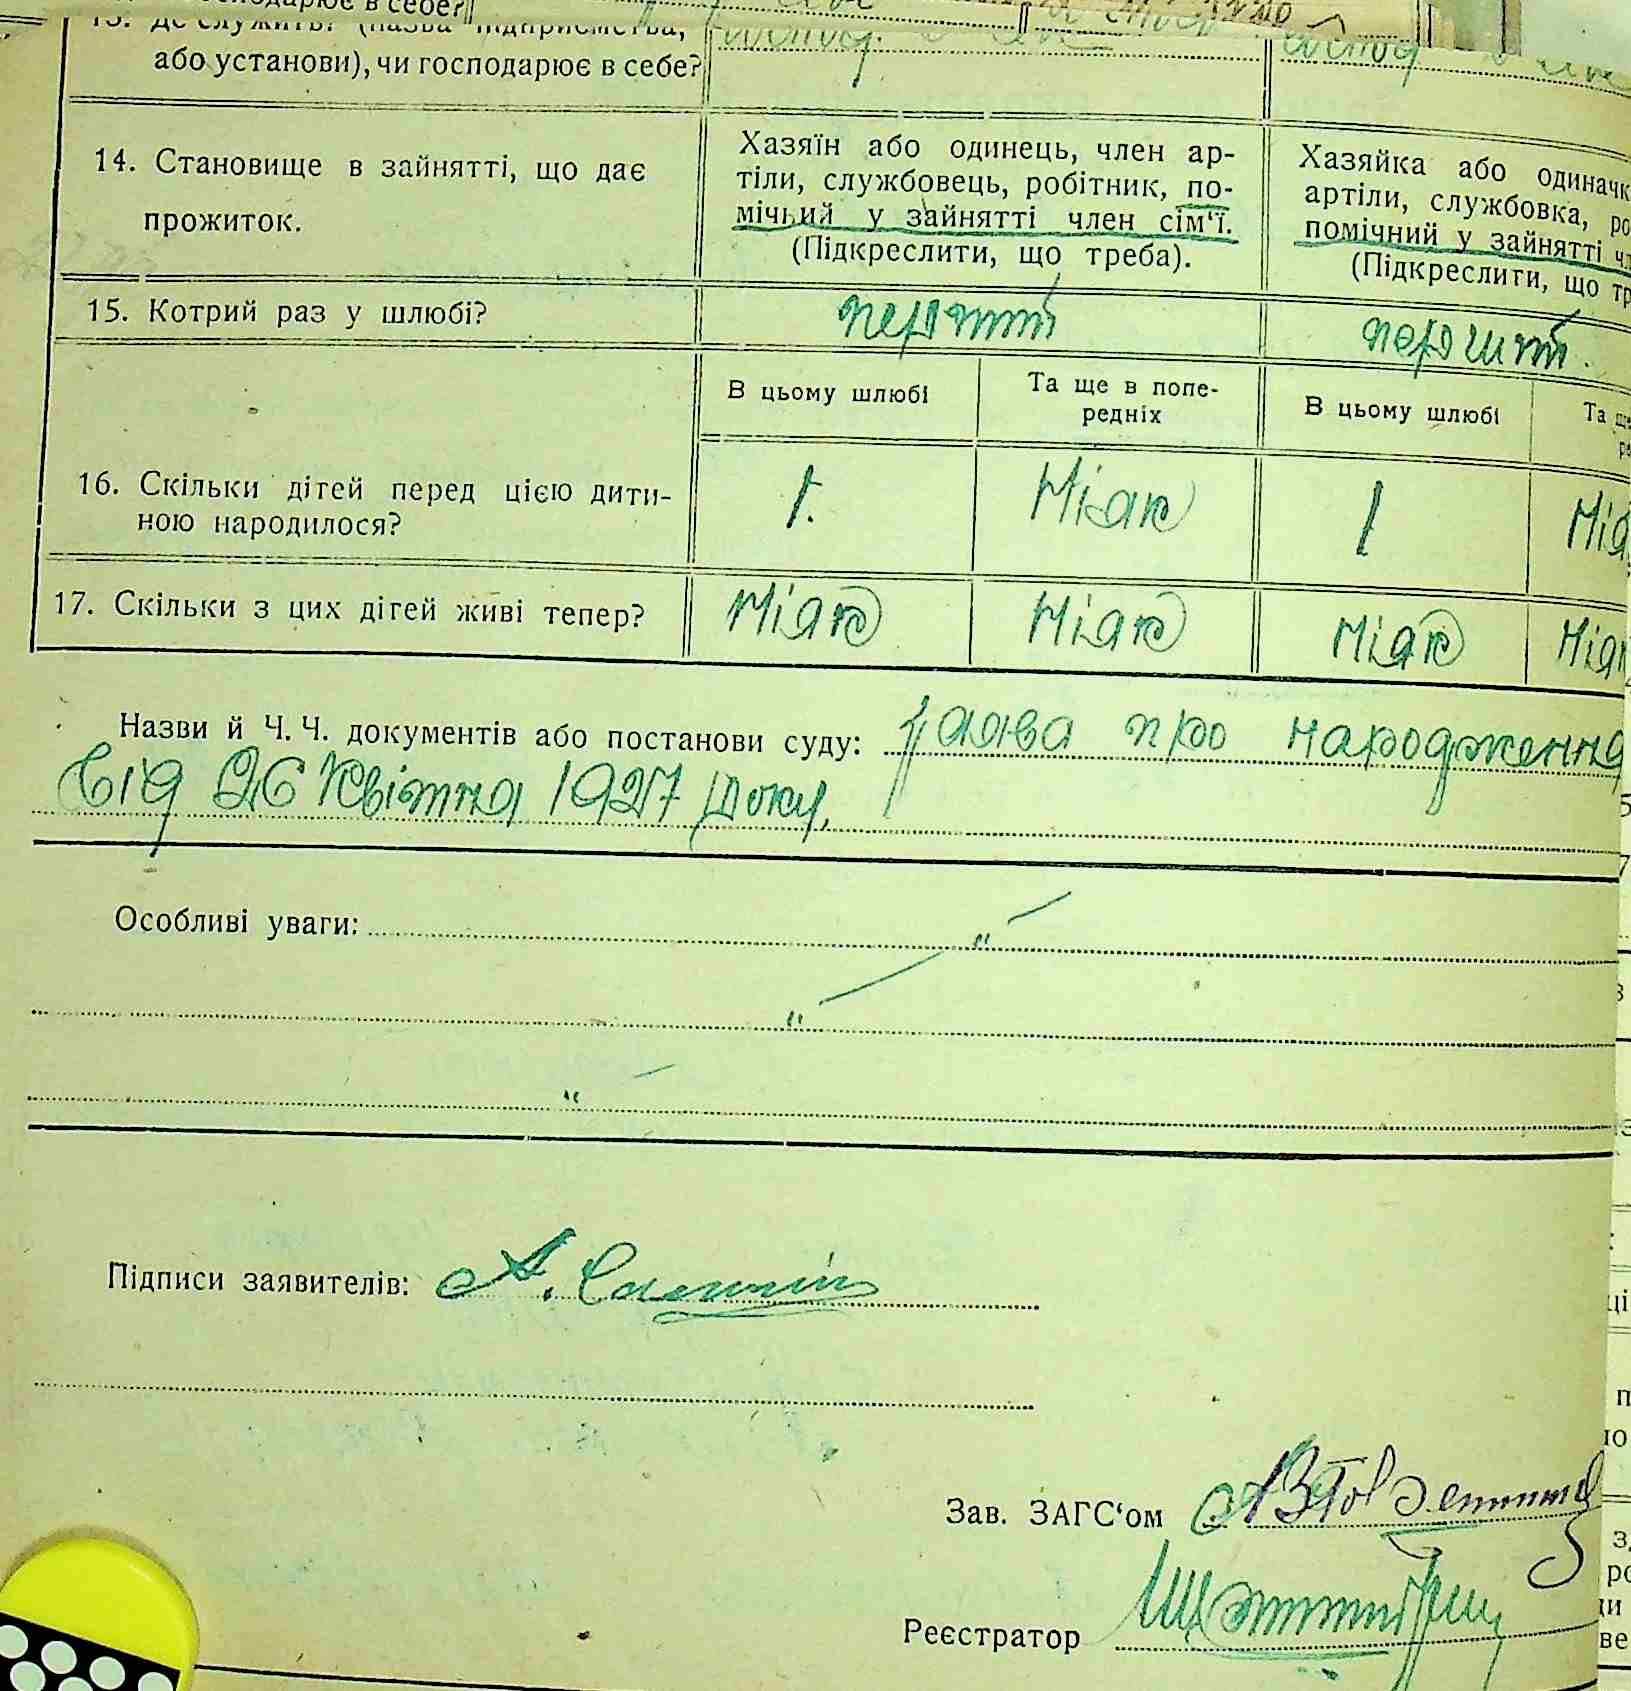 господарює в себе?
13. Де служить? (назва підприємства,
або установи), чи господарює в себе?
господ. в себе
господ в себе
14. Становище в зайнятті, що дає
прожиток.
Хазяїн або одинець, член ар-
тіли, службовець, робітник, по-
мічний у зайнятті член сім'ї.
(Підкреслити, що треба).
Хазяйка або одиначк
артіли, службовка, ро
помічний у зайнятті чл
(Підкреслити, що тр
15. Котрий раз у шлюбі?
перший
перший.
В цьому шлюбі
Та ще в попе-
редніх
В цьому шлюбі
Та ще
ре
16. Скільки дітей перед цією дити-
ною народилося?
1.
Ніяк
1
Нія
17. Скільки з цих дітей живі тепер?
Ніяк
Ніяк
Ніяк
Ніяк
Назви й Ч. Ч. документів або постанови суду: Заява про народження
від 26 Квітня 1927 року.
Особливі уваги:
Підписи заявителів: А.
Зав. ЗАГС'ом
Реєстратор